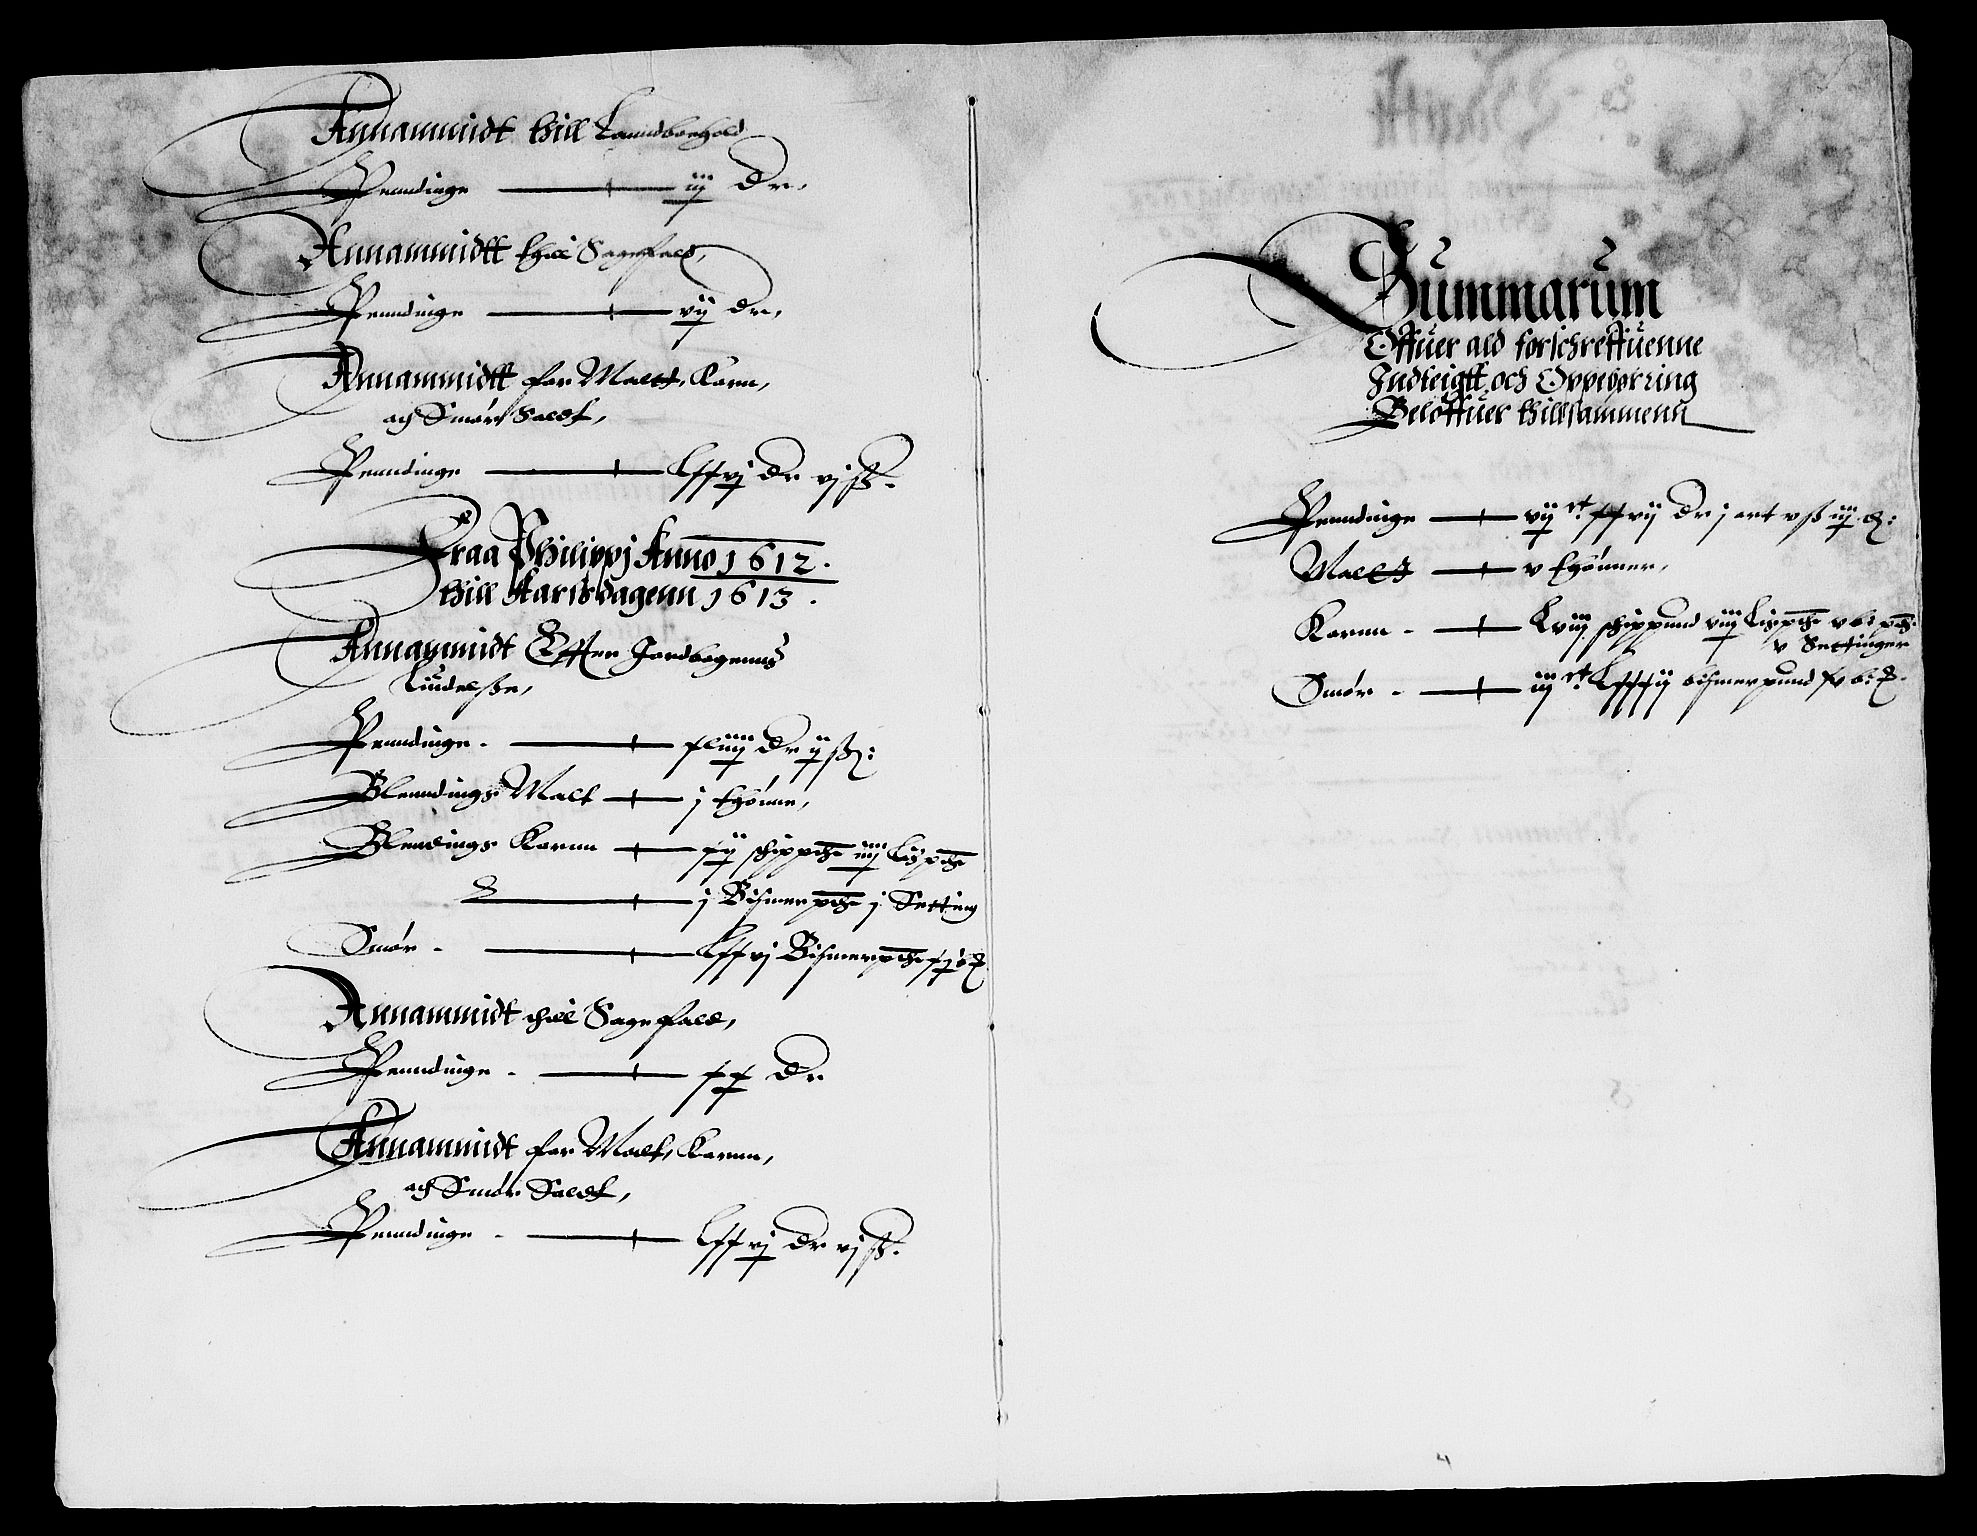 Annammidt thill Lanndboehold
Penndinge — iij dr,
Annammidtt thill Sagefald,
Penndinge — vij dr,
Annammidtt for Maltt, Kornn,
och Smør Soldt,
Penndinge — Lxxvj dr vj ß.
Fraa Philippj Anno 1612.
thill Karssdagenn 1613.
Annammidt Effter Jordbogenns
Liudelsse,
Penndinge. — xLiiij dr ij ß:
Blenndings Malt — j thønne,
Blendings Kornn — xij schippd iiij Lispd
j Bismerpd j Setting
Smør — Lxxvj Bismerpd
Annammidt thill Sagefald,
Penndinge. — xx dr
Annammidt for Malt, Kornn,
och Smør Soldt,
Penndinge — Lxxvj dr vj ß.
Summarum
Offuer ald forschreffuenne
Indteigtt, och Oppebørring
Beløffuer thillsammenn
Penndinge — vij ct. xxvij dr j ort v ß iij d:
Maltt — v thønner,
Kornn — Lviij schippund viij Lispd v b: pd
v Settinger
Smør — iij ct. Lxxxij bismerpund